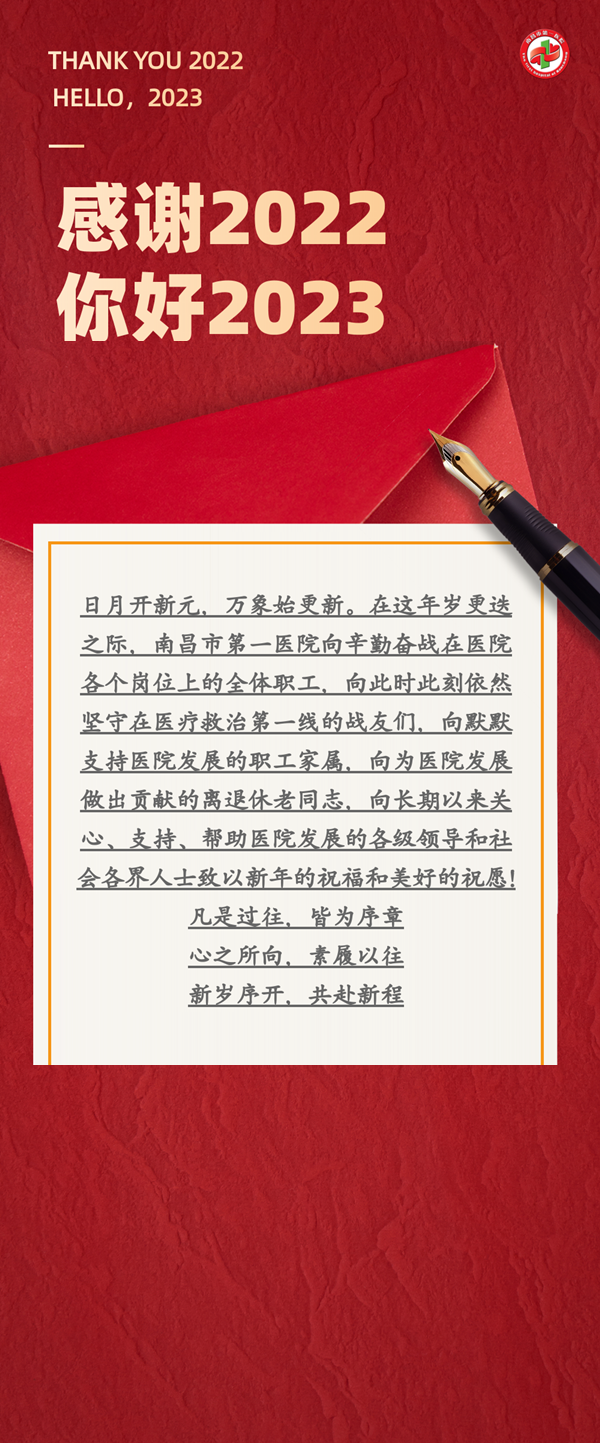 THANK YOU 2022
HELLO，2023
感谢2022
你好2023
日月开新元，万象始更新。在这年岁更迭
之际，南昌市第一医院向辛勤奋战在医院
各个岗位上的全体职工，向此时此刻依然
坚守在医疗救治第一线的战友们，向默默
支持医院发展的职工家属，向为医院发展
做出贡献的离退休老同志，向长期以来关
心、支持、帮助医院发展的各级领导和社
会各界人士致以新年的祝福和美好的祝愿!
凡是过往，皆为序章
心之所向，素履以往
新岁序开，共赴新程